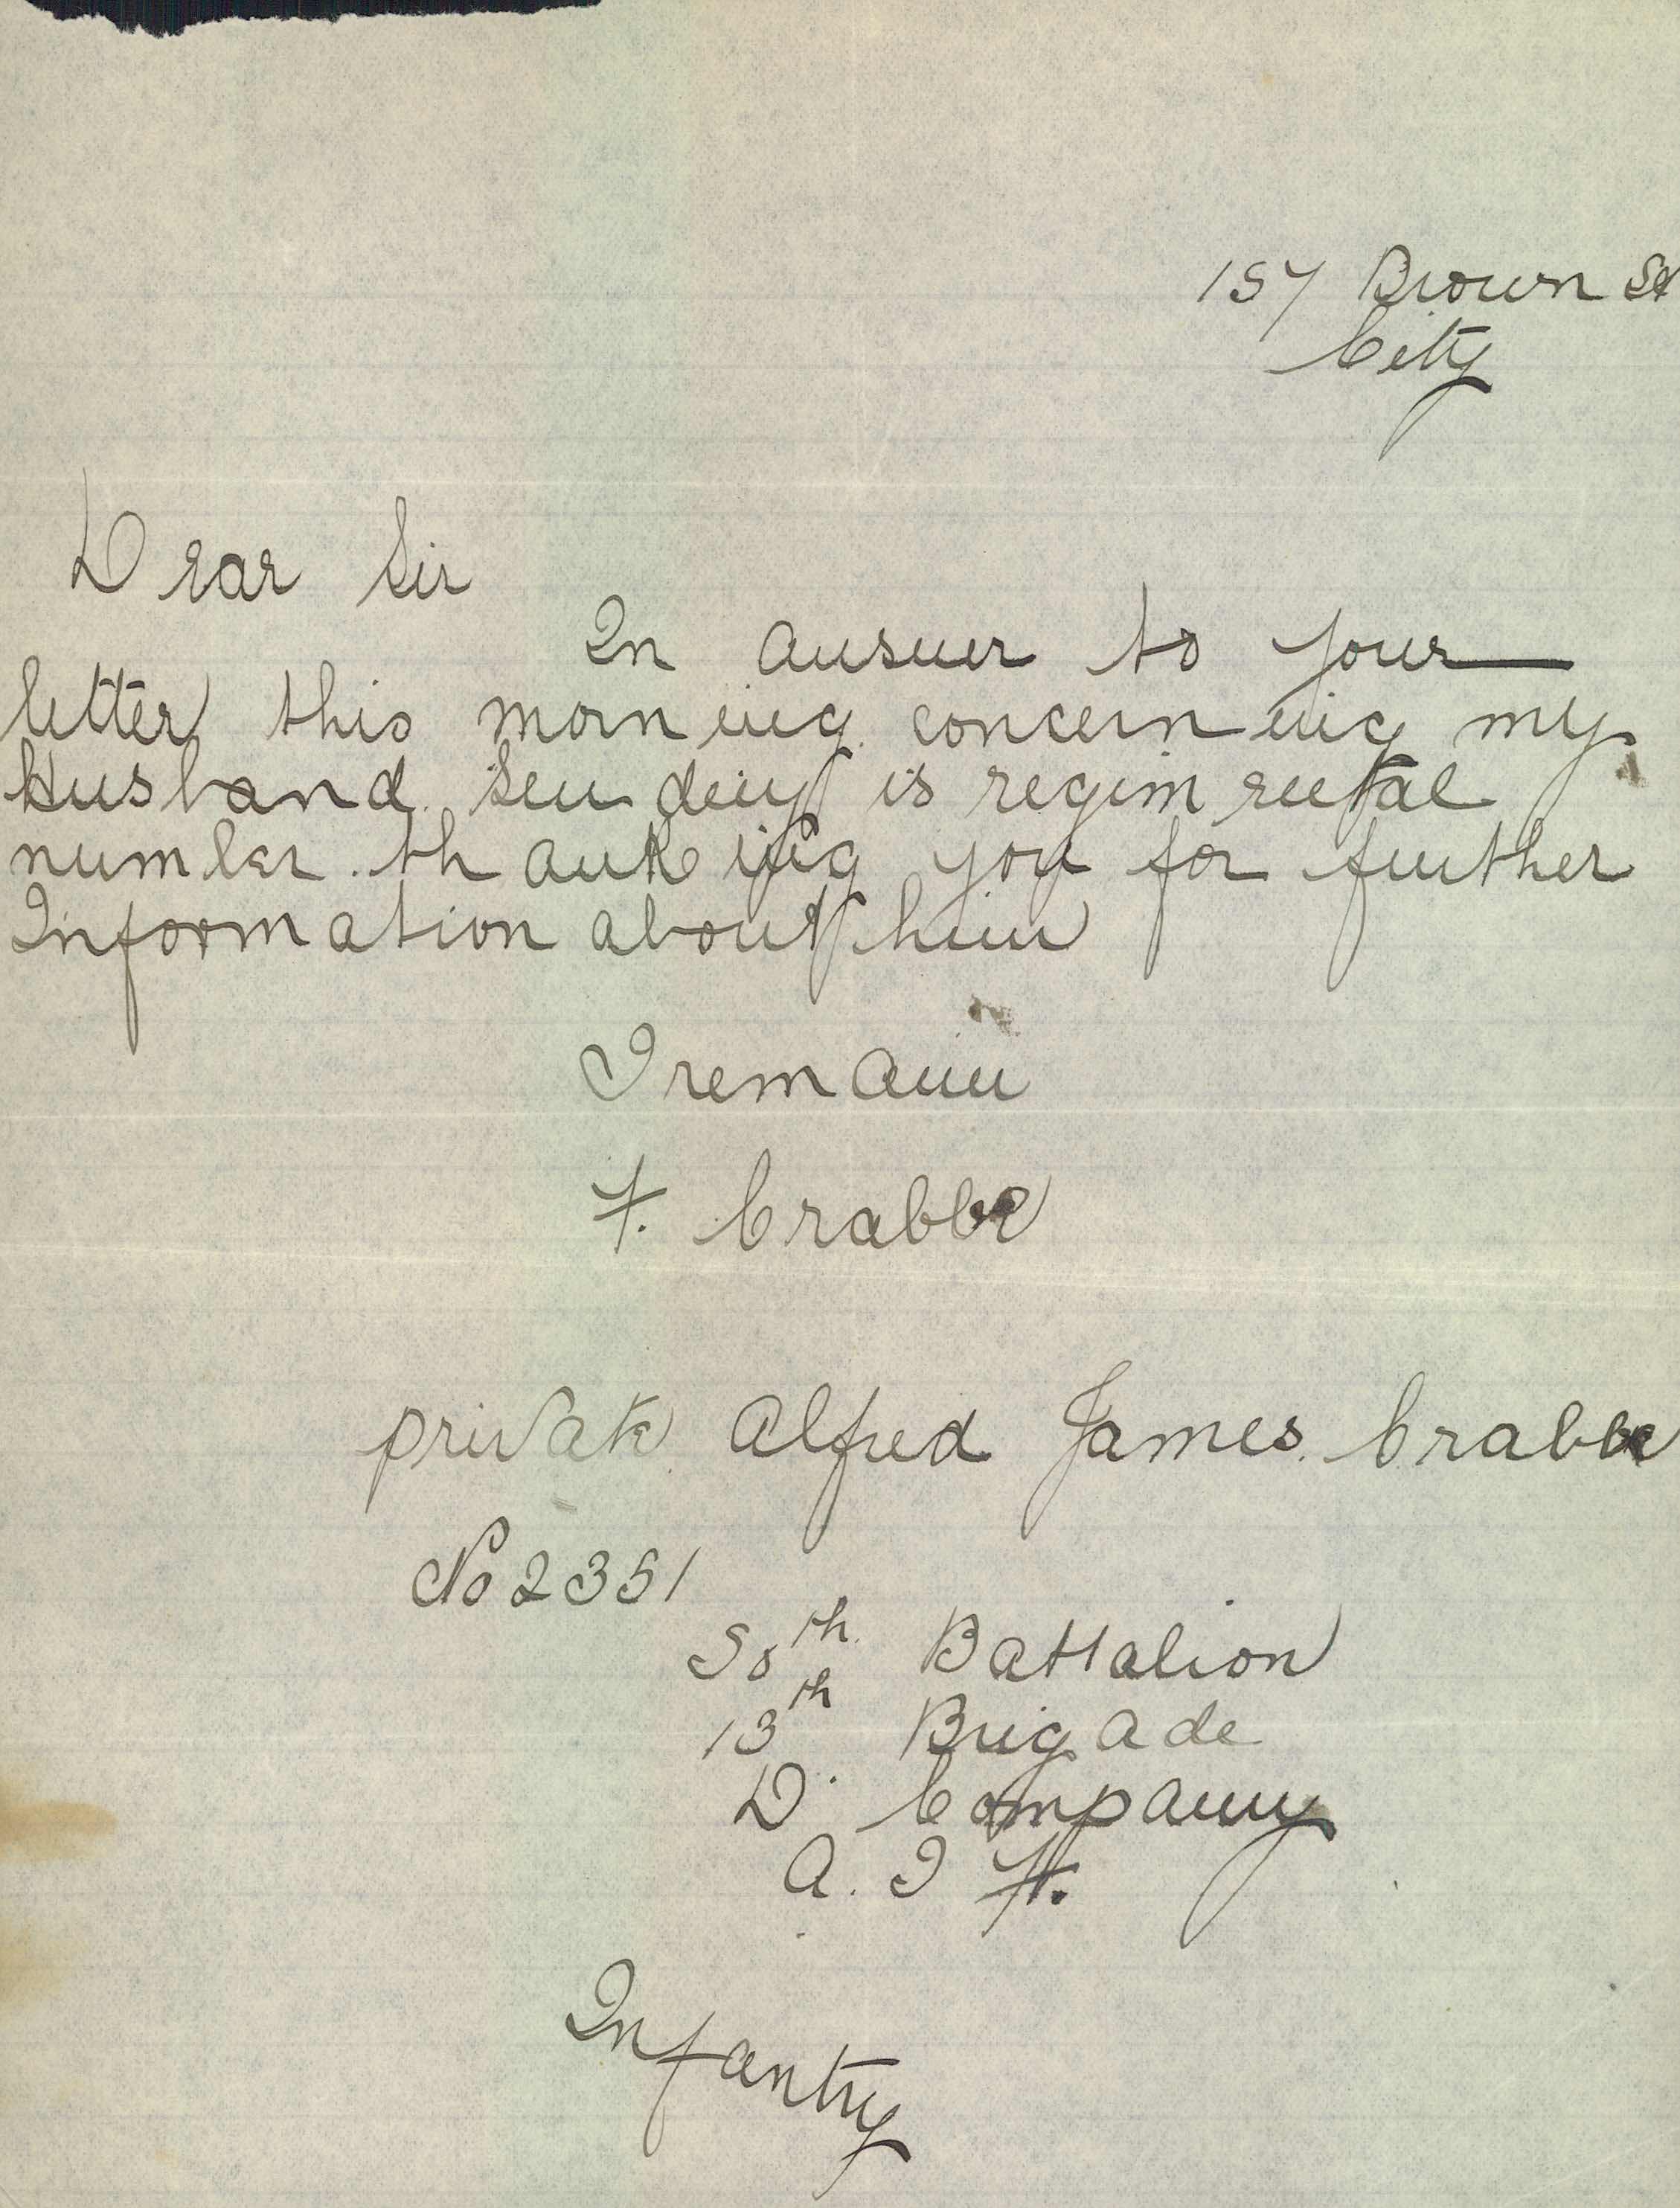 157 Brown St
City
Dear Sir
In answer to your
letter this morning concerning my
Husband. Sending is regimental
number. thanking you for further
Information about him
I remain
F. Crabbe
private Alfred James. Crabbe
No 2351
50th Battalion
13th Brigade
D. Company
A. I F.
Infantry